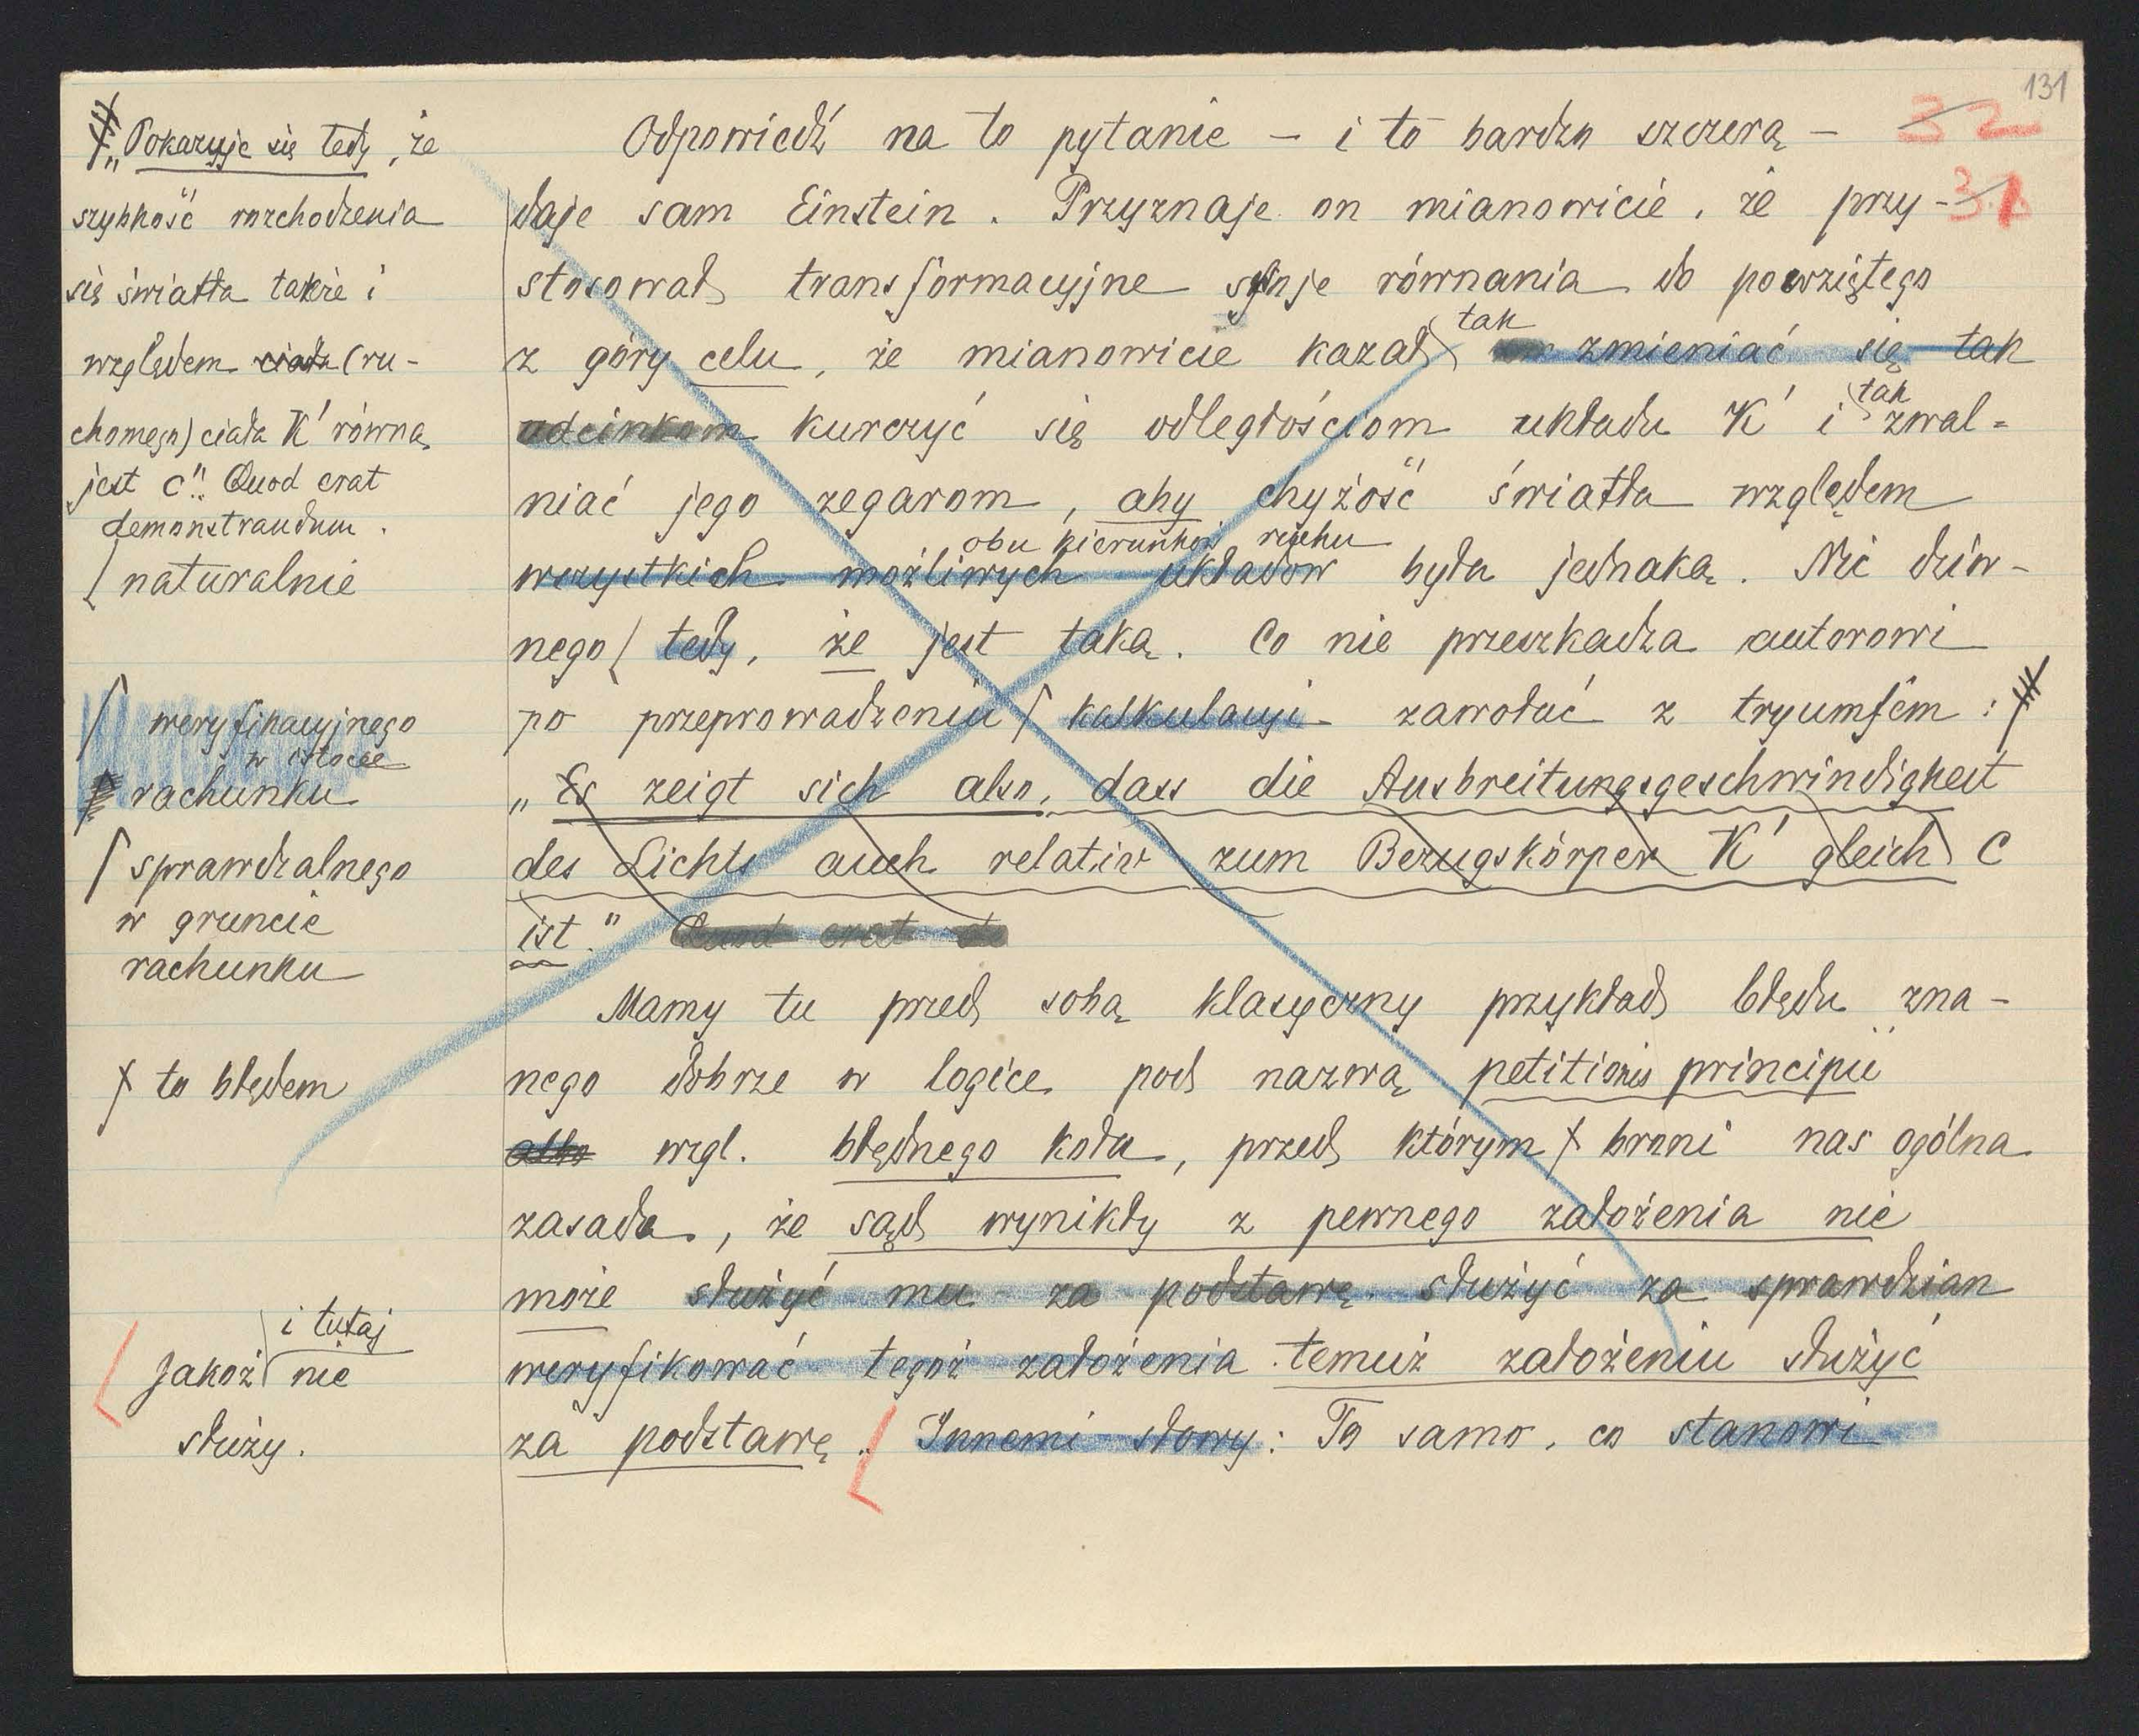 131
32
31
Odpowiedź na to pytanie – i to bardzo szczerą –
daje sam Einstein. Przyznaje on mianowicie, że przy-
stosował transformacyjne swoje równania do powziętego
z góry celu, że mianowicie kazał tak zmieniać się tak
odcinkom kurczyć się odległościom układu K' i tak zwal-
niać jego zegarom, aby chyżość światła względem
obu kierunków ruchu
wszystkich możliwych układów była jednaką. Nic dziw-
nego tedy, że jest taką. Co nie przeszkadza autorowi
po przeprowadzeniu kalkulacji zawołać z tryumfem:
„Es zeigt sich also, dass die Ausbreitungsgeschwindigkeit
des Lichts auch relativ zum Bezugskörper K' gleich c
ist." Quod erat de
Mamy tu przed sobą klasyczny przykład błędu zna-
nego dobrze w logice pod nazwą petitionis principii
albo wzgl. błędnego koła, przed którym broni nas ogólna
zasada, że sąd wynikły z pewnego założenia nie
może służyć mu za podstawę służyć za sprawdzian
weryfikować tegoż założenia temuż założeniu służyć
za podstawę. Innemi słowy: To samo, co stanowi
„Pokazuje się tedy, że
szybkość rozchodzenia
się światła także i
względem ciała (ru-
chomego) ciała K' równą
jest c". Quod erat
demonstrandum.
naturalnie
weryfikacyjnego
w istocie
rachunku
sprawdzalnego
w gruncie
rachunku
to błędem
i tutaj
Jakoż nie
służy.